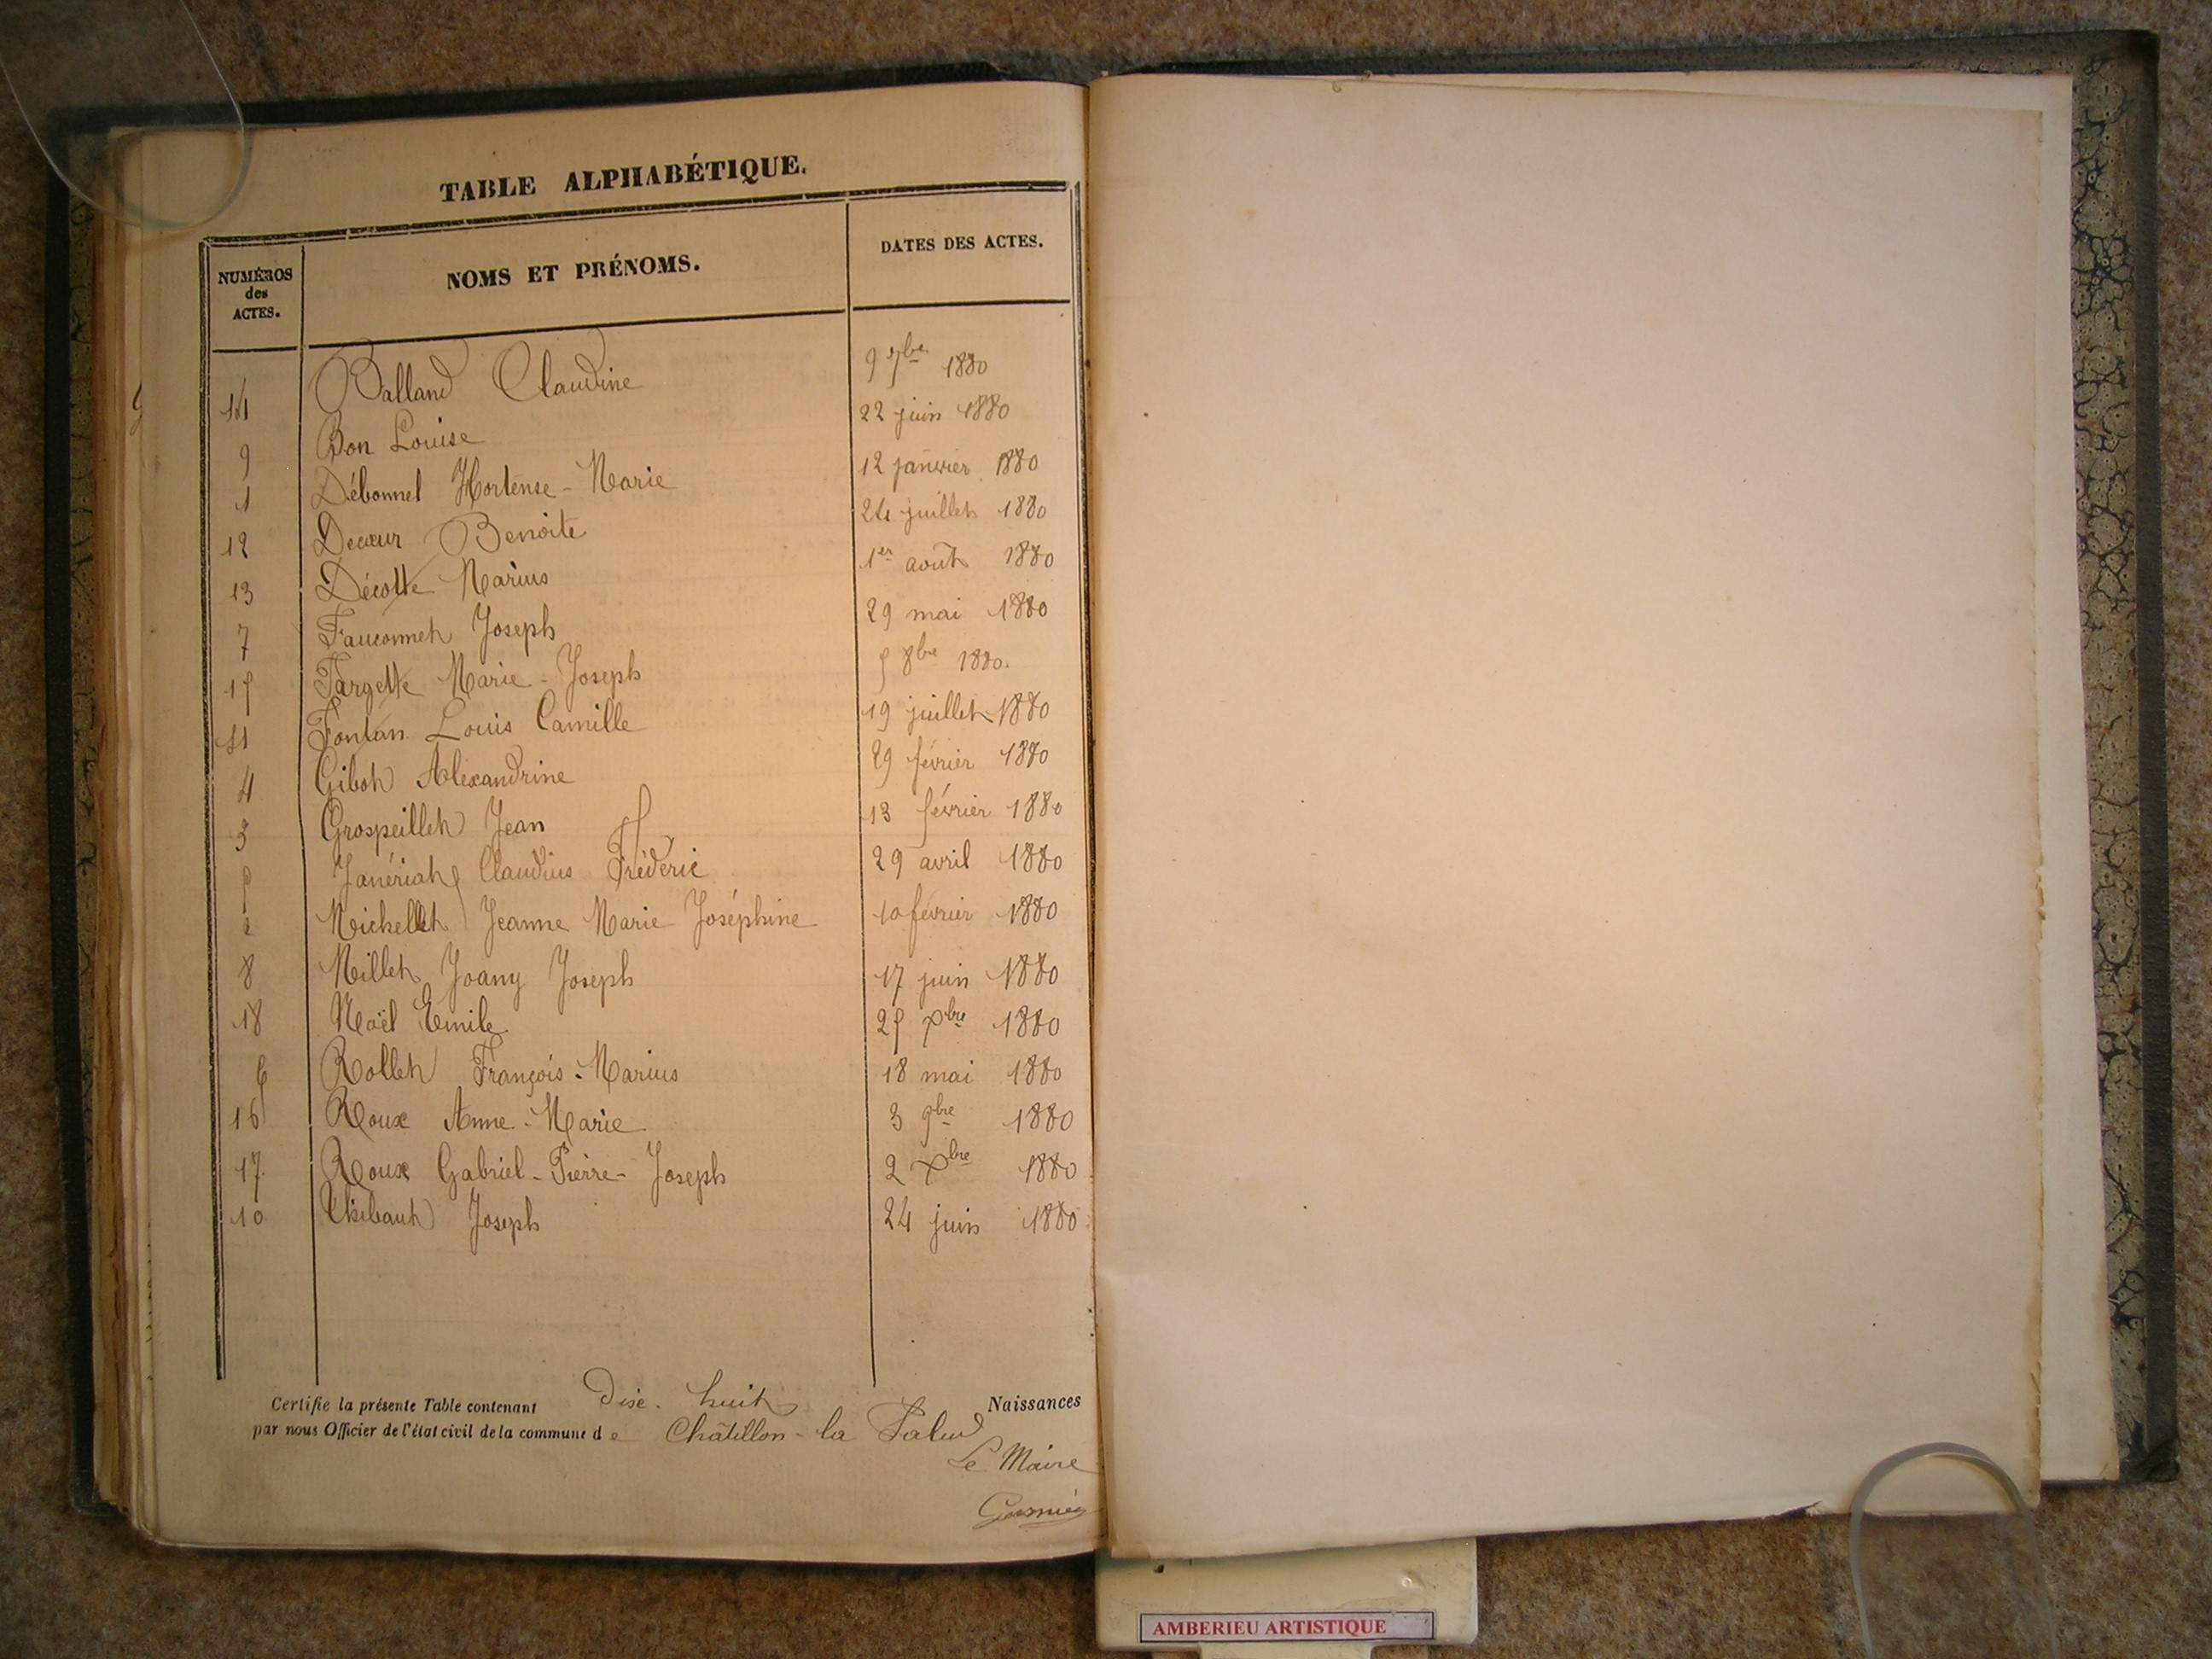 TABLE ALPHABÉTIQUE.
NUMÉROS des ACTES. NOMS ET PRÉNOMS. DATES DES ACTES.
14 Balland Claudine 9 7bre 1880
9 Bon Louise 22 juin 1880
1 Débonnet Hortense-Marie 12 janvier 1880
12 Decœur Benoite 24 juillet 1880
13 Décotte Marius 1er août 1880
7 Fauconnet Joseph 29 mai 1880
15 Fargette Marie-Joseph 5 8bre 1880.
11 Fontan Louis Camille 19 juillet 1880
4 Gibot Alexandrine 29 février 1880
3 Grospeillet Jean 13 février 1880
5 Janériat Claudius Frédéric 29 avril 1880
2 Michellet Jeanne Marie Joséphine 10 février 1880
8 Millet Joany Joseph 17 juin 1880
18 Noël Emile 25 Xbre 1880
6 Rollet François-Marius 18 mai 1880
16 Roux Anne-Marie 3 9bre 1880
17 Roux Gabriel-Pierre-Joseph 2 Xbre 1880
10 Thibaut Joseph 24 juin 1880
Certifie la présente Table contenant Dix-huit Naissances
par nous Officier de l'état civil de la commune de Châtillon-la Palud
Le Maire
AMBERIEU ARTISTIQUE